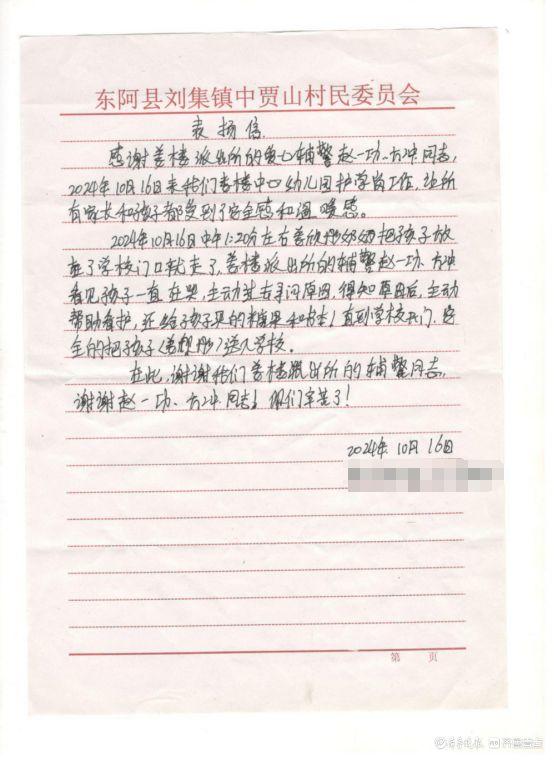 东阿县刘集镇中贾山村民委员会
表扬信
感谢姜楼派出所的爱心辅警赵一功、方冲同志,
2024年10月16日来我们姜楼中心幼儿园护学岗工作,让所
有家长和孩子都受到了安全感和温暖感。
2024年10月16日中午1:20分左右姜欣彤奶奶把孩子放
在了学校门口就走了,姜楼派出所的辅警赵一功、方冲
看见孩子一直在哭,主动过去寻问原因,得知原因后,主动
帮助看护,还给孩子买的糖果和 直到学校开门,安
全的把孩子(姜 彤)送入学校。
在此,谢谢我们姜楼派出所的辅警同志,
谢谢赵一功、方冲同志!你们辛苦了!
2024年10月16日
第 页
齐鲁晚报 齐鲁壹点